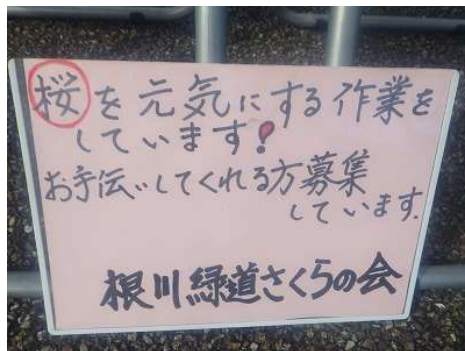 桜を元気にする作業を
しています!
お手伝いしてくれる方募集
しています.
根川緑道さくらの会